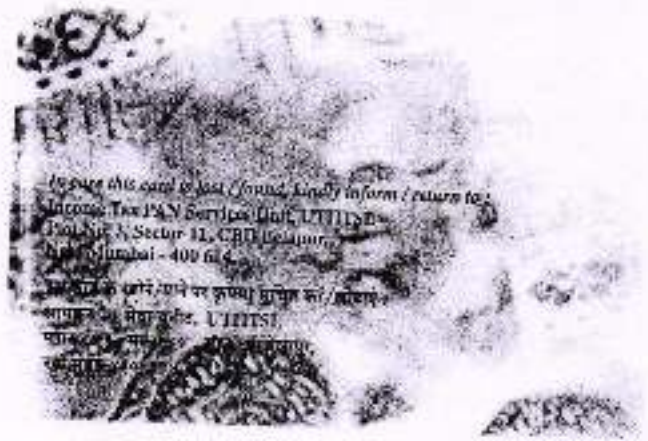 In case this card is lost / found, kindly inform / return to :
Income Tax PAN Services Unit, UTIITSL
Plot No. 3, Sector 11, CBD Belapur,
Navi Mumbai - 400 614.
इस कार्ड के खोने/पाने पर कृपया सूचित करें/लौटाएं :
आयकर पैन सेवा यूनीट, UTIITSL